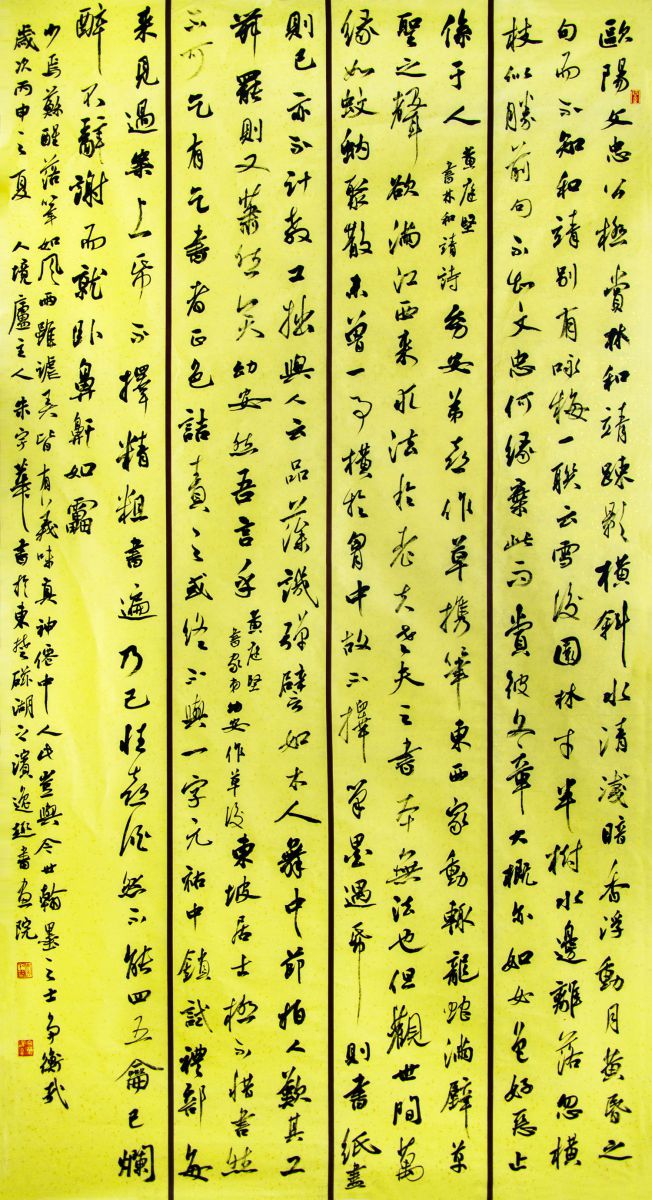 歐陽文忠公極賞林和靖疎影橫斜水清淺暗香浮動月黃昏之
句而不知和靖別有咏梅一聯云雪後園林才半樹水邊籬落忽橫
枝似勝前句不知文忠何緣棄此而賞彼文章大概亦如女色好惡止
係于人
黃庭堅
書林和靖詩
幼安弟喜作草攜筆東西家動輒龍蛇滿壁草
聖之聲欲滿江西來求法於老夫老夫之書本無法也但觀世間萬
緣如蚊蚋聚散未嘗一事橫於胷中故不擇筆墨遇紙則書紙盡
則已亦不計較工拙與人云品藻譏彈譬如木人舞中節拍人歎其工
舞罷則又蕭然矣幼安然吾言乎
黃庭堅
書家弟幼安作草後
東坡居士極不惜書然
不可乞有乞書者正色詰責之或終不與一字元祐中鎖試禮部每
來見過案上紙不擇精粗書遍乃已性喜酒然不能四五龠已爛
醉不辭謝而就卧鼻鼾如雷
少焉蘇醒落筆如風雨雖謔弄皆有義味真神僊中人此豈與今世翰墨之士爭衡哉
歲次丙申之夏 人境廬主人朱宇華書於東楚磁湖之濱逸趣書畫院